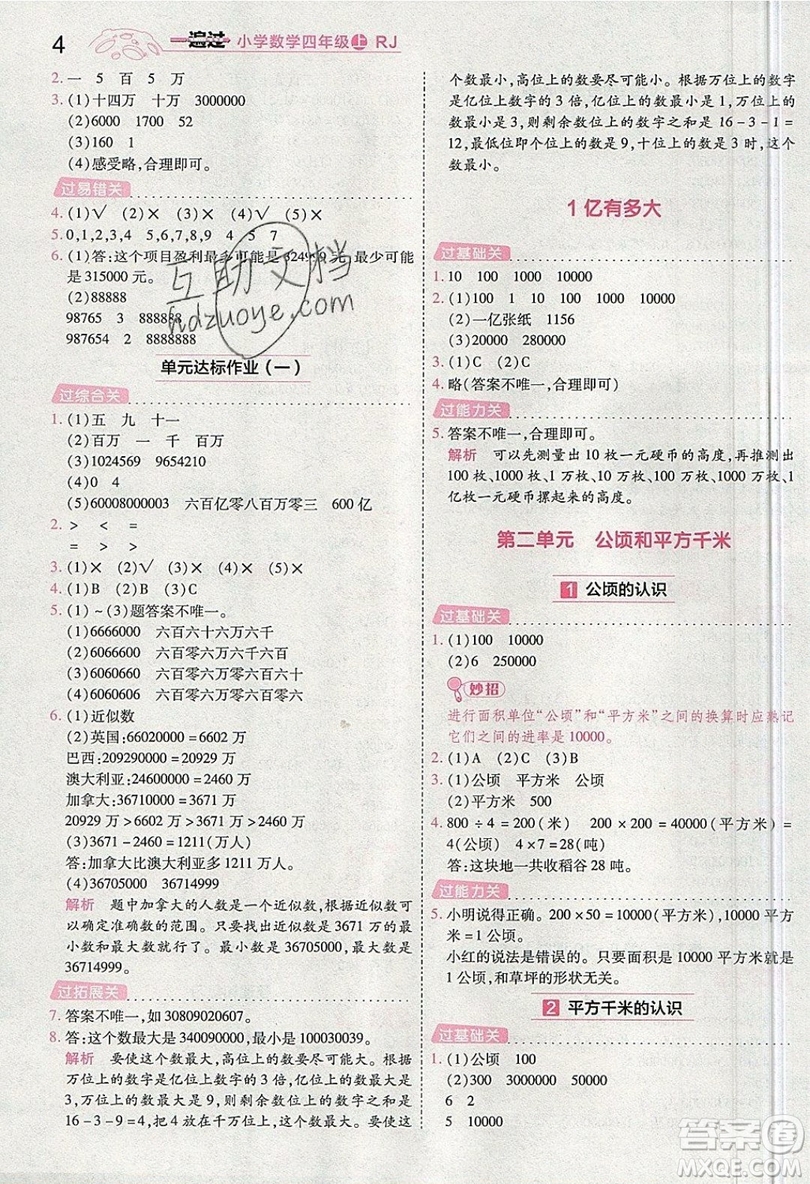 4 一遍过 小学数学四年级上 RJ
2. 一 五 百 五 万
3. (1)十四万 十万 3000000
(2)6000 1700 52
(3)160 1
(4)感受略,合理即可。
过易错关
4. (1)√ (2)× (3)× (4)×
5. 0,1,2,3,4 5,6,7,8,9 4 5 7
6. (1)答:这个项目盈利最多可能是 32499
最少可能
是 315000 元。
(2)88888
98765 3 888888
987654 9 8888888
单元达标作业(一)
过综合关
1. (1)五 九 十一
(2)百万 一 千 百万
(3)1024569 9654210
(4)0 4
(5)60008000003 六百亿零八百万零三 600 亿
2. > < =
= > >
3. (1)× (2)√ (3)× (4)×
4. (1)B (2)C (3)A (4)D
5. (1)~(3)题答案不唯一。
(1)6666000 六百六十六万六千
(2)6006600 六百零六万六千六百
(3)6060606 六百零六万零六百零六
(4)6060006 六百零六万零六
6. (1)近似数
(2)英国:66020000=6602 万
巴西:209290000=20929 万
澳大利亚:24600000=2460 万
加拿大:36710000=3671 万
20929 万>6602 万>3671 万>2460 万
(3)3671-2460=1211(万)
答:加拿大比澳大利亚多 1211 万。
(4)36714999 36705000
解析 题中加拿大的人数是一个近似数,根据近似数可
以确定准确数的范围。只要求出近似数是 3671 万的最
小数和最大数就行了。最小数是 36705000,最大数是
36714999。
过拓展关
7. 答案不唯一,如 30809020607。
8. 答:这个数最大是 340090000,最小是 100030039。
解析 要使这个数最大,高位上的数要尽可能大。根据
万位上的数字是亿位上数字的 3 倍,亿位上数字最大
是 3,万位上的数最大是 9,则剩余数位上的数字之和是
16-3-9=4,把 4 放在千万位上,这个数最大。要使这
个数最小,高位上的数要尽可能小。根据万位上的数字
是亿位上数字的 3 倍,亿位上的数字最小是 1,万位上的
数最小是 3,则剩余数位上的数字之和是 16-3-1=
12,最低位即个位上的数是 9,十位上的数是 3 时,这个
数最小。
1 亿有多大
过基础关
1. 10 100 1000 10000
2. (1)100 1000 10000
(2)一亿张纸 1156
(3)20000 280000
3. (1)C (2)C
4. 略(答案不唯一,合理即可)
过能力关
5. 答案不唯一,合理即可。
解析 可以先测量出 10 枚一元硬币的高度,再推测出
100 枚、1000 枚、1 万枚、10 万枚、100 万枚、1000 万枚、1
亿枚一元硬币摞起来的高度。
第二单元 公顷和平方千米
1 公顷的认识
过基础关
1. (1)100 10000
(2)6 250000
妙招
进行面积单位“公顷”和“平方米”之间的换算时应熟记
它们之间的进率是 10000。
2. (1)A (2)C (3)B
3. (1)公顷 平方米 公顷
(2)平方米 500
4. 800÷4=200(米) 200×200=40000(平方米)=
4(公顷) 4×7=28(吨)
答:这块地一共收稻谷 28 吨。
过能力关
5. 小明说得正确。200×50=10000(平方米),10000 平方
米=1 公顷。
小红的说法是错误的。只要面积是 10000 平方米就是
1 公顷,和草坪的形状无关。
2 平方千米的认识
过基础关
1. (1)公顷 100 1000000
(2)300 3000000 50000
6 2
5 10000
互助文档
hdzuoye.com
答案圈
MXQE.COM